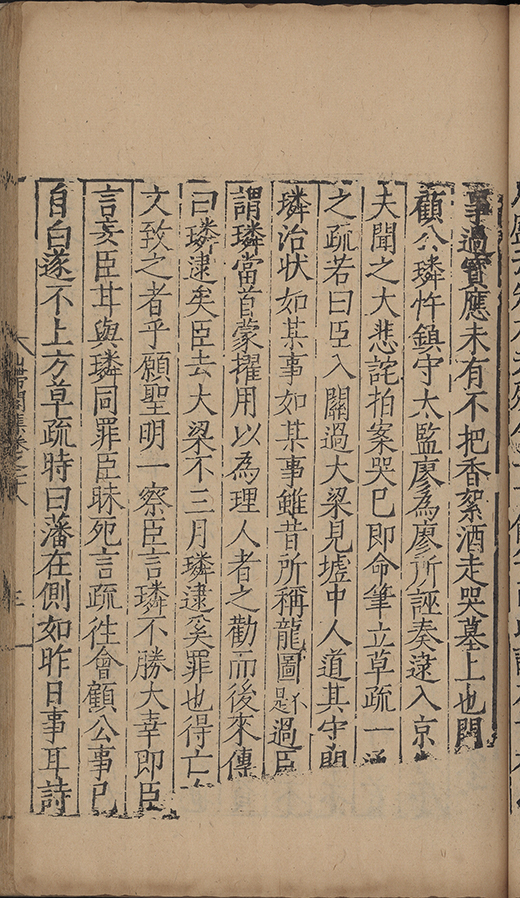 事過寶應未有不把香絮酒走哭墓上也聞
顧公璘忤鎮守太監廖為廖所誣奏逮入京
夫聞之大悲詫拍案哭已即命筆立草疏一
之疏若曰臣入關過大梁見墟中人道其守
璘治狀如某事如某事雖昔所稱龍圖是不過臣
謂璘當首蒙擢用以為理人者之勸而後來傳
曰璘逮矣臣去大梁不三月璘逮奚罪也得亡
文致之者乎願聖明一察臣言璘不勝大幸即臣
言妄臣甘與璘同罪臣昧死言疏徃會顧公事已
自白遂不上方草疏時曰藩在側如昨日事耳詩